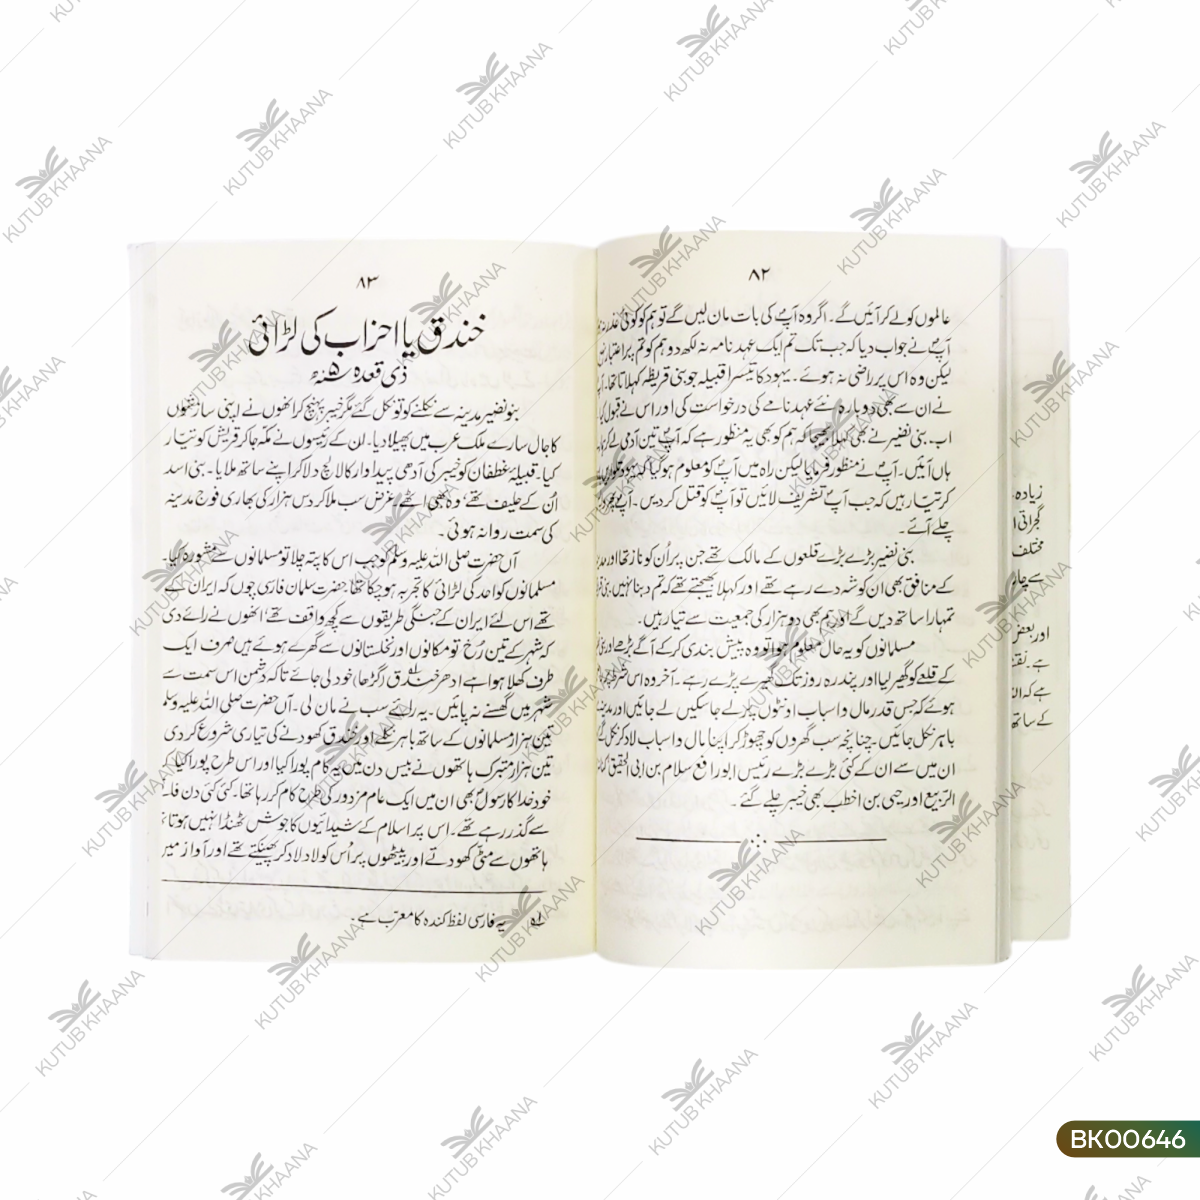 ۸۲
عالموں کو لے کر آئیں گے۔ اگر وہ آپؐ کی بات مان لیں گے تو ہم کو کوئی عذر نہ
آپؐ نے جواب دیا کہ جب تک تم ایک عہد نامہ نہ لکھ دو ہم کو تم پر اعتبار نہیں
لیکن وہ اس پر راضی نہ ہوئے۔ یہود کا تیسرا قبیلہ جو بنی قریظہ کہلاتا تھا۔
نے ان سے بھی دوبارہ نئے عہد نامے کی درخواست کی اور اس نے قبول
اب۔ بنی نضیر نے بھی کہلا بھیجا کہ ہم کو بھی یہ منظور ہے کہ آپؐ تین آدمی لے کر
ہاں آئیں۔ آپؐ نے منظور فرمایا لیکن راہ میں آپؐ کو معلوم ہو گیا کہ یہود
کر تیار ہیں کہ جب آپؐ تشریف لائیں تو آپؐ کو قتل کر دیں۔ آپؐ
چلے آئے۔
بنی نضیر بڑے بڑے قلعوں کے مالک تھے جن پر اُن کو ناز تھا اور
کے منافق بھی ان کو شہ دے رہے تھے اور کہلا بھیجتے تھے کہ تم دبنا نہیں،
تمہارا ساتھ دیں گے اور ہم بھی دو ہزار کی جمعیت سے تیار ہیں۔
مسلمانوں کو یہ حال معلوم ہوا تو وہ پیش بندی کر کے آگے بڑھے اور
کے قلعے کو گھیر لیا اور پندرہ روز تک گھیرے پڑے رہے۔ آخر وہ اس شرط
ہوئے کہ جس قدر مال و اسباب اونٹوں پر لے جا سکیں لے جائیں اور مدینہ
باہر نکل جائیں۔ چنانچہ سب گھروں کو چھوڑ کر اپنا مال و اسباب لاد کر نکل
ان میں سے ان کے کئی بڑے بڑے رئیس ابو رافع سلام بن ابی الحقیق
الربیع اور حیی بن اخطب بھی خیبر چلے گئے۔
۸۳
خندق یا احزاب کی لڑائی
ذی قعدہ ۵ سنہ
بنو نضیر مدینہ سے نکلنے کو تو نکل گئے مگر خیبر پہنچ کر انھوں نے اپنی سازشوں
کا جال سارے ملک عرب میں پھیلا دیا۔ ان کے رئیسوں نے مکہ جا کر قریش کو تیار
کیا۔ قبیلۂ غطفان کو خیبر کی آدھی پیداوار کا لالچ دلا کر اپنے ساتھ ملایا۔ بنی اسد
اُن کے حلیف تھے، وہ بھی اٹھے، غرض سب ملا کر دس ہزار کی بھاری فوج مدینہ
کی سمت روانہ ہوئی۔
آں حضرت صلی اللہ علیہ وسلم کو جب اس کا پتہ چلا تو مسلمانوں سے مشورہ کیا۔
مسلمانوں کو احد کی لڑائی کا تجربہ ہو چکا تھا، حضرت سلمان فارسی چوں کہ ایران کے
تھے اس لئے ایران کے جنگی طریقوں سے کچھ واقف تھے، انھوں نے رائے دی
کہ شہر کے تین رُخ تو مکانوں اور نخلستانوں سے گھرے ہوئے ہیں صرف ایک
طرف کھلا ہوا ہے ادھر خندق لہ (گڑھا) خود لی جائے تاکہ دشمن اس سمت سے
شہر میں گھسنے نہ پائیں۔ یہ رائے سب نے مان لی۔ آں حضرت صلی اللہ علیہ وسلم
تین ہزار مسلمانوں کے ساتھ باہر نکلے اور خندق کھودنے کی تیاری شروع کر دی
تین ہزار متبرک ہاتھوں نے بیس دن میں یہ کام پورا کیا اور اس طرح پورا کیا کہ
خود خدا کا رسولؐ بھی ان میں ایک عام مزدور کی طرح کام کر رہا تھا۔ کئی کئی دن فاقے
سے گذر رہے تھے۔ اس پر اسلام کے شیدائیوں کا جوش ٹھنڈا نہیں ہوتا
ہاتھوں سے مٹی کھودتے اور پیٹھوں پر اُس کو لاد لاد کر پھینکتے تھے اور آواز میں
لہ یہ فارسی لفظ کندہ کا معرب ہے۔
زیادہ۔
گجراتی
مختلف
اور بعض
ہے۔
ہے کہ
کے ساتھ
KUTUB KHAANA
BK00646